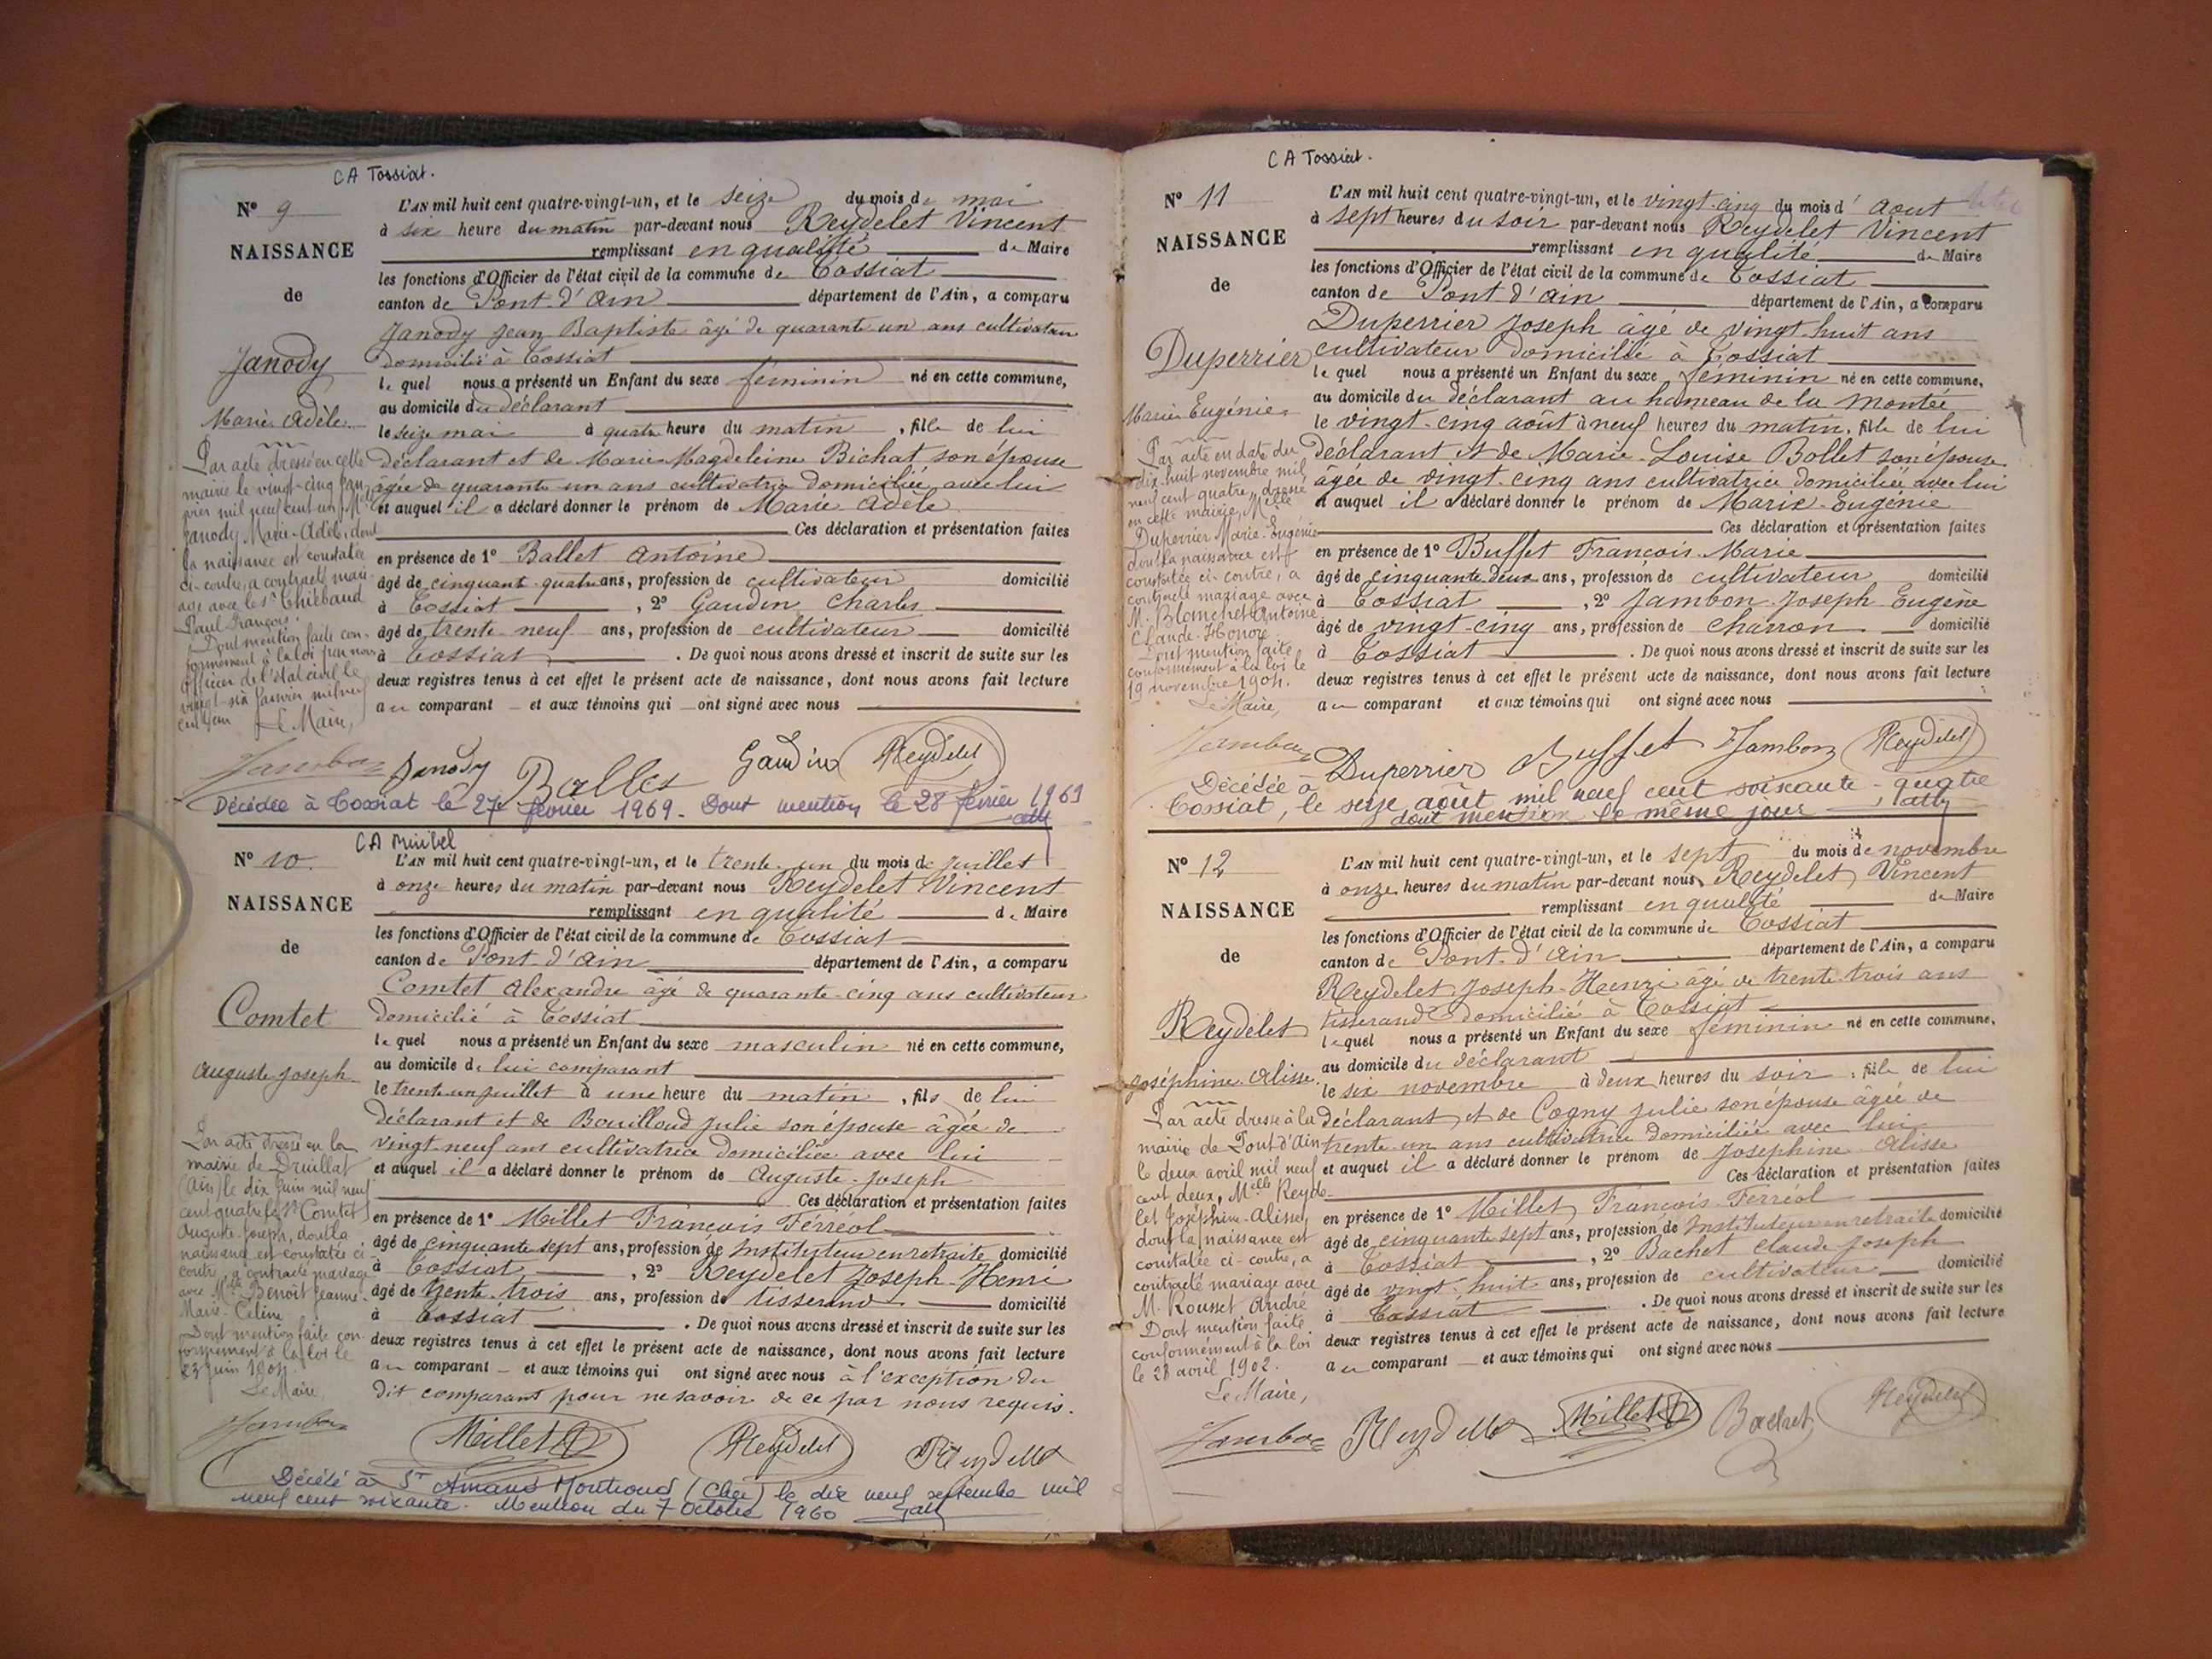 CA Tossiat.
N° 9
NAISSANCE
de
Janody
Marie Adèle
L'AN mil huit cent quatre-vingt-un, et le seize du mois de mai
à six heure du matin par-devant nous Reydelet Vincent
remplissant en qualité de Maire
les fonctions d'Officier de l'état civil de la commune de Tossiat
canton de Pont-d'ain département de l'Ain, a comparu
Janody Jean Baptiste âgé de quarante un ans cultivateur
domicilié à Tossiat
le quel nous a présenté un Enfant du sexe féminin né en cette commune,
au domicile du déclarant
le seize mai à quatre heure du matin, fille de lui
déclarant et de Marie Magdeleine Bichat son épouse
âgée de quarante un ans cultivatrice domiciliée avec lui
et auquel il a déclaré donner le prénom de Marie Adèle
Ces déclaration et présentation faites
en présence de 1° Ballet Antoine
âgé de cinquant quatre ans, profession de cultivateur domicilié
à Tossiat, 2° Gaudin Charles
âgé de trente neuf ans, profession de cultivateur domicilié
à Tossiat. De quoi nous avons dressé et inscrit de suite sur les
deux registres tenus à cet effet le présent acte de naissance, dont nous avons fait lecture
au comparant et aux témoins qui ont signé avec nous
Par acte dressé en cette
mairie le vingt-cinq jan
vier mil neuf cent un, Mlle
Janody Marie-Adèle, dont
la naissance est constatée
ci-contre, a contracté mari
age avec le Sr Thiébaud
Paul François.
Dont mention faite con-
formément à la loi par nous
Officier de l'état civil le
vingt-six janvier mil neuf
cent un Le Maire,
Jambon Janody Ballet Gaudin Reydelet
Décédée à Tossiat le 27 février 1969. Dont mention le 28 février 1969
CA Miribel
N° 10
NAISSANCE
de
Comtet
Auguste Joseph
L'AN mil huit cent quatre-vingt-un, et le trente-un du mois de juillet
à onze heures du matin par-devant nous Reydelet Vincent
remplissant en qualité de Maire
les fonctions d'Officier de l'état civil de la commune de Tossiat
canton de Pont-d'ain département de l'Ain, a comparu
Comtet Alexandre âgé de quarante-cinq ans cultivateur
domicilié à Tossiat
le quel nous a présenté un Enfant du sexe masculin né en cette commune,
au domicile de lui comparant
le trente un juillet à une heure du matin, fils de lui
déclarant et de Bouilloud Julie son épouse âgée de
vingt neuf ans cultivatrice domiciliée avec lui
et auquel il a déclaré donner le prénom de Auguste-Joseph
Ces déclaration et présentation faites
en présence de 1° Millet François Ferréol
âgé de cinquante sept ans, profession de Instituteur en retraite domicilié
à Tossiat, 2° Reydelet Joseph-Henri
âgé de trente trois ans, profession de tisserand domicilié
à Tossiat. De quoi nous avons dressé et inscrit de suite sur les
deux registres tenus à cet effet le présent acte de naissance, dont nous avons fait lecture
au comparant et aux témoins qui ont signé avec nous à l'exception du
dit comparant pour ne savoir de ce par nous requis.
Par acte dressé en la
mairie de Druillat
(Ain) le dix juin mil neuf
cent quatre le Sr Comtet
Auguste-Joseph, dont la
naissance est constatée ci
contre, a contracté mariage
avec Mlle Benoit Jeanne-
Marie-Céline
Dont mention faite con-
formément à la loi le
23 juin 1904.
Le Maire
Jambon Millet Reydelet Reydellet
Décédé à St Amand Montrond (Cher) le dix neuf septembre mil
neuf cent soixante. Mention du 7 octobre 1960
CA Tossiat.
N° 11
NAISSANCE
de
Duperrier
Marie Eugénie
L'AN mil huit cent quatre-vingt-un, et le vingt-cinq du mois d'aout
à sept heures du soir par-devant nous Reydelet Vincent
remplissant en qualité de Maire
les fonctions d'Officier de l'état civil de la commune de Tossiat
canton de Pont d'ain département de l'Ain, a comparu
Duperrier Joseph âgé de vingt huit ans
cultivateur domicilié à Tossiat
le quel nous a présenté un Enfant du sexe féminin né en cette commune,
au domicile du déclarant au hameau de la Montée
le vingt-cinq août à neuf heures du matin, fille de lui
déclarant et de Marie-Louise Bollet son épouse
âgée de vingt-cinq ans cultivatrice domiciliée avec lui
et auquel il a déclaré donner le prénom de Marie-Eugénie
Ces déclaration et présentation faites
en présence de 1° Buffet François-Marie
âgé de cinquante-deux ans, profession de cultivateur domicilié
à Tossiat, 2° Jambon Joseph Eugène
âgé de vingt-cinq ans, profession de charron domicilié
à Tossiat. De quoi nous avons dressé et inscrit de suite sur les
deux registres tenus à cet effet le présent acte de naissance, dont nous avons fait lecture
au comparant et aux témoins qui ont signé avec nous
Par acte en date du
dix-huit novembre mil
neuf cent quatre, dressé
en cette mairie, Mlle
Duperrier Marie-Eugénie
dont la naissance est
constatée ci-contre, a
contracté mariage avec
M. Blanchet Antoine
Claude-Honoré
Dont mention faite
conformément à la loi le
19 novembre 1904.
Le Maire,
Jambon Duperrier Buffet Jambon Reydelet
Décédée à
Tossiat, le seize août mil neuf cent soixante-quatre
dont mention le même jour
N° 12
NAISSANCE
de
Reydelet
Joséphine Alisse
L'AN mil huit cent quatre-vingt-un, et le sept du mois de novembre
à onze heures du matin par-devant nous Reydelet Vincent
remplissant en qualité de Maire
les fonctions d'Officier de l'état civil de la commune de Tossiat
canton de Pont-d'ain département de l'Ain, a comparu
Reydelet Joseph-Henri âgé de trente-trois ans
tisserand domicilié à Tossiat
le quel nous a présenté un Enfant du sexe féminin né en cette commune,
au domicile du déclarant
le six novembre à deux heures du soir, fille de lui
déclarant et de Cogny Julie son épouse âgée de
trente-un ans cultivatrice domiciliée avec lui
et auquel il a déclaré donner le prénom de Josephine Alisse
Ces déclaration et présentation faites
en présence de 1° Millet François-Ferréol
âgé de cinquante sept ans, profession de Instituteur en retraite domicilié
à Tossiat, 2° Bachet Claude Joseph
âgé de vingt-huit ans, profession de cultivateur domicilié
à Tossiat. De quoi nous avons dressé et inscrit de suite sur les
deux registres tenus à cet effet le présent acte de naissance, dont nous avons fait lecture
au comparant et aux témoins qui ont signé avec nous
Par acte dressé à la
mairie de Pont-d'Ain
le deux avril mil neuf
cent deux, Mlle Reyde-
let Joséphine-Alisse,
dont la naissance est
constatée ci-contre, a
contracté mariage avec
M. Rousset André
Dont mention faite
conformément à la loi
le 28 avril 1902.
Le Maire,
Jambon Reydellet Millet Bachet Reydelet